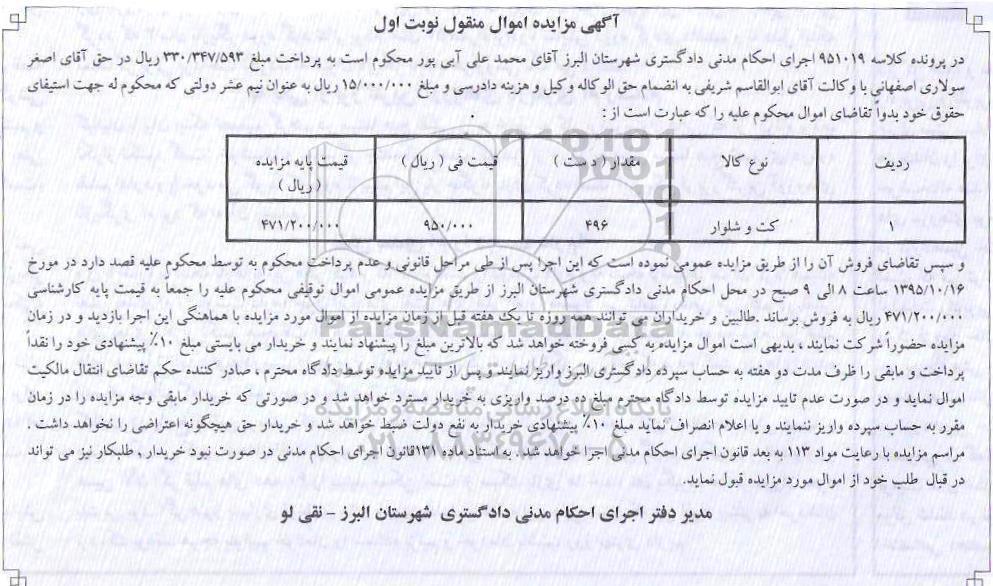 آگهی مزایده اموال منقول نوبت اول
در پرونده کلاسه ۹۵۱۰۱۹ اجرای احکام مدنی دادگستری شهرستان البرز آقای محمد علی آبی پور محکوم است به پرداخت مبلغ ۳۳۰/۳۴۷/۵۹۳ ریال در حق آقای اصغر
سولاری اصفهانی با وکالت آقای ابوالقاسم شریفی به انضمام حق الوکاله وکیل و هزینه دادرسی و مبلغ ۱۵/۰۰۰/۰۰۰ ریال به عنوان نیم عشر دولتی که محکوم له جهت استیفای
حقوق خود بدواً تقاضای اموال محکوم علیه را که عبارت است از :
ردیف نوع کالا مقدار ( دست ) قیمت فی ( ریال ) قیمت پایه مزایده
( ریال )
۱ کت و شلوار ۴۹۶ ۹۵۰/۰۰۰ ۴۷۱/۲۰۰/۰۰۰
و سپس تقاضای فروش آن را از طریق مزایده عمومی نموده است که این اجرا پس از طی مراحل قانونی و عدم پرداخت محکوم به توسط محکوم علیه قصد دارد در مورخ
۱۳۹۵/۱۰/۱۶ ساعت ۸ الی ۹ صبح در محل احکام مدنی دادگستری شهرستان البرز از طریق مزایده عمومی اموال توقیفی محکوم علیه را جمعاً به قیمت پایه کارشناسی
۴۷۱/۲۰۰/۰۰۰ ریال به فروش برساند .طالبین و خریداران می توانند همه روزه تا یک هفته قبل از زمان مزایده از اموال مورد مزایده با هماهنگی این اجرا بازدید و در زمان
مزایده حضوراً شرکت نمایند ، بدیهی است اموال مزایده به کسی فروخته خواهد شد که بالاترین مبلغ را پیشنهاد نمایند و خریدار می بایستی مبلغ ۱۰٪ پیشنهادی خود را نقداً
پرداخت و مابقی را ظرف مدت دو هفته به حساب سپرده دادگستری البرز واریز نمایند و پس از تایید مزایده توسط دادگاه محترم ، صادر کننده حکم تقاضای انتقال مالکیت
اموال نماید و در صورت عدم تایید مزایده توسط دادگاه محترم مبلغ ده درصد واریزی به خریدار مسترد خواهد شد و در صورتی که خریدار مابقی وجه مزایده را در زمان
مقرر به حساب سپرده واریز ننمایند و یا اعلام انصراف نماید مبلغ ۱۰٪ پیشنهادی خریدار به نفع دولت ضبط خواهد شد و خریدار حق هیچگونه اعتراضی را نخواهد داشت .
مراسم مزایده با رعایت مواد ۱۱۳ به بعد قانون اجرای احکام مدنی اجرا خواهد شد. به استناد ماده ۱۳۱قانون اجرای احکام مدنی در صورت نبود خریدار , طلبکار نیز می تواند
در قبال طلب خود از اموال مورد مزایده قبول نماید.
مدیر دفتر اجرای احکام مدنی دادگستری شهرستان البرز - نقی لو
ParsNamadData
پایگاه اطلاع رسانی مناقصه و مزایده
۰۲۱-۸۸۳۴۹۶۷۰-۵